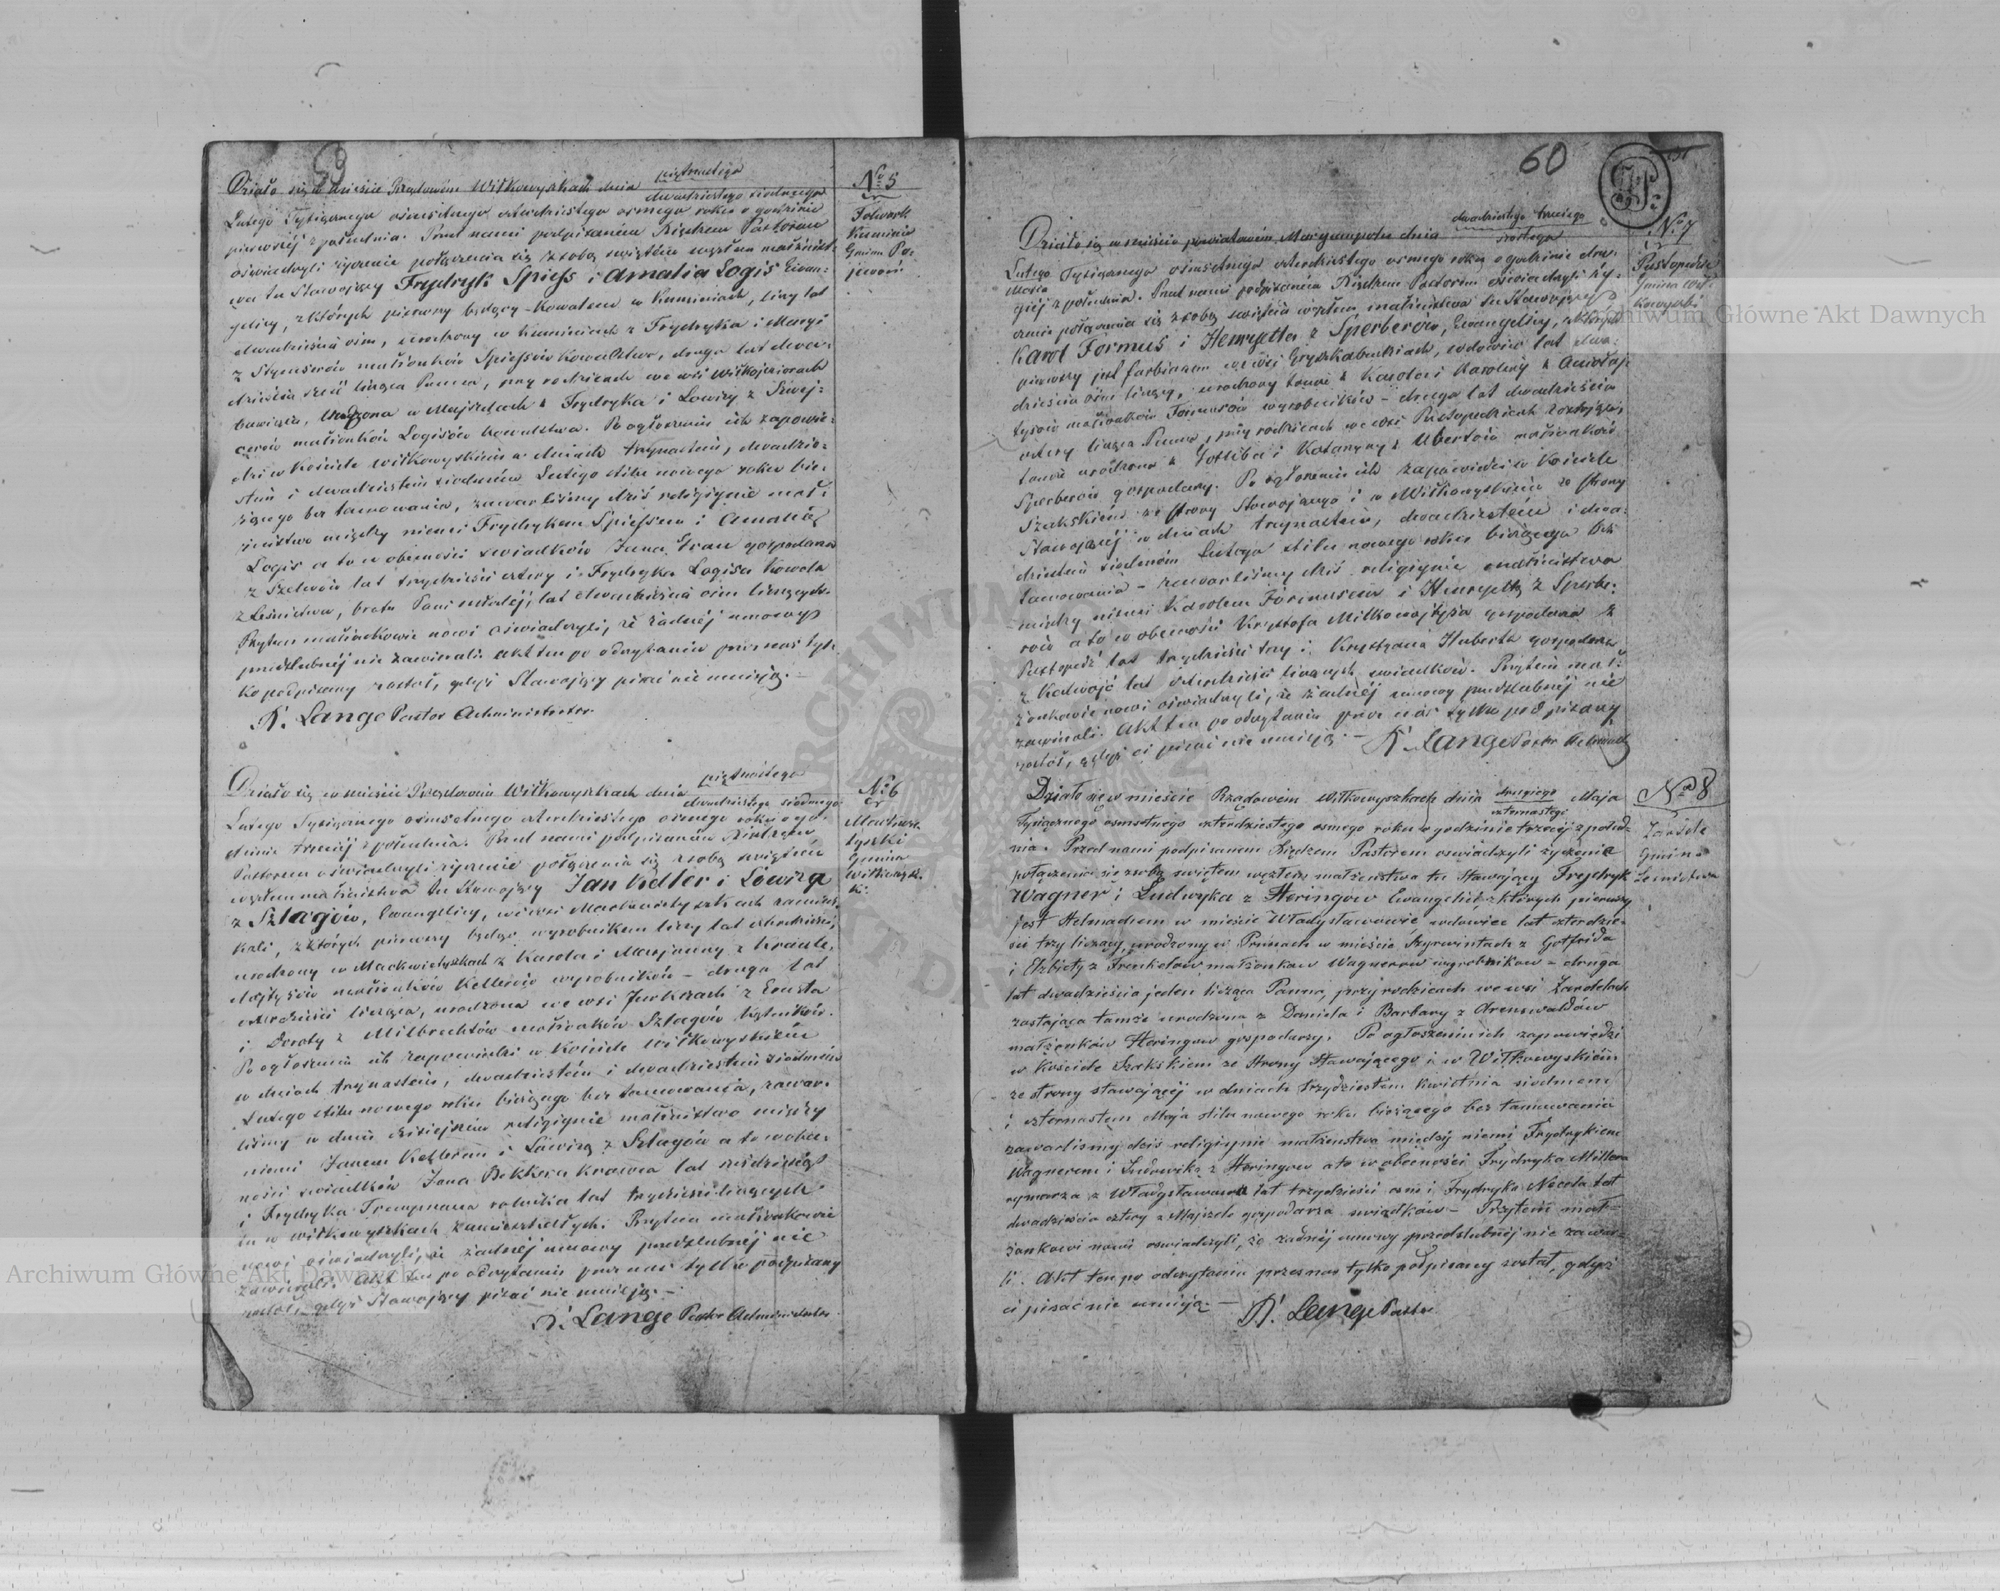 59
Działo się w mieście Rządowém Wiłkowyszkach dnia piętnastego
dwudziestego siódmego
Lutego Tysiącznego ośmsetnego czterdziestego ósmego roku o godzinie
pierwszéj z południa. Przed nami podpisaném Księdzem Pastorem
oświadczyli życzenie połączenia się z sobą świętém węzłem małżeńst-
wa tu Stawający Frydryk Spieſs i Amalia Logis Ewan-
gelicy, z których pierwszy będący Kowalem w Kumieciach, liczy lat
dwadzieścia ośm, urodzony w Kumieciach z Frydryka i Maryi
z małżonków Spieſsów Kowalstwa, druga lat dwa-
dzieścia sześć licząca Panna, przy rodzicach we wsi
bawiąca, urodzona w Majszelach z Frydryka i Lowizy z Szwej-
cerów małżonków Logisów Kowalstwa. Po ogłoszeniu ich zapowie-
dzi w Kościele Wiłkowyskiém w dniach trzynastém, dwudzie-
stém i dwudziestém siódmém Lutego stilu nowego roku bie-
żącego bez tamowania, zawarliśmy dziś religijnie mał-
żeństwo między niemi Frydrykem Spieſsem i Amalią
Logis a to w obecności świadków Jana Grau gospodarza
z Szelwów lat trzydzieści cztery i Frydryka Logisa Kowala
z Leśnictwa, brata Pani młodéj, lat dwadzieścia ośm liczących.
Przytem małżonkowie nowi oświadczyli, że żadnéj umowy
przedślubnéj nie zawierali. Akt ten po odczytaniu przez nas tyl-
ko podpisany został, gdyż Stawający pisać nie umieją. —
K. Lange Pastor Administrator.
№ 5
Folwark
Kumiecie
Gmina Po-
jewoń
Działo się w mieście Rządowém Wiłkowyszkach dnia piętnastego
dwudziestego siódmego
Lutego Tysiącznego ośmsetnego czterdziestego ósmego roku o go-
dzinie trzeciéj z południa. Przed nami podpisaném Księdzem
Pastorem oświadczyli życzenie połączenia się z sobą świętém
węzłem małżeństwa tu Stawający Jan Keller i Lowiza
z Sztagów, Ewangelicy, w wsi Mackwietyszkach zamiesz-
kali, z których pierwszy będąc wyrobnikem liczy lat czterdzieści,
urodzony w Mackwietyszkach z Karola i Maryanny z
małżonków Kellerów wyrobników – druga lat
czterdzieści licząca, urodzona we wsi Jurkszach z Ernsta
i Doroty z Milbrechtów małżonków Sztagów
Po ogłoszeniu ich zapowiedzi w Kościele Wiłkowyskiém
w dniach trzynastém, dwudziestém i dwudziestém siódmém
Lutego stilu nowego roku bieżącego bez tamowania, zawar-
liśmy w dniu dzisiejszém religijnie małżeństwo między
niemi Janem Kellerem i Lowizą z Sztagów a to w obec-
ności świadków Jana Bekkera Krawca lat sześdziesiąt
i Frydryka Trempnaua rolnika lat trzydzieści liczących
tu w Wiłkowyszkach zamieszkałych. Przytem małżonkowie
nowi oświadczyli, że żadnéj umowy przedślubnéj nie
zawierali. Akt ten po odczytaniu przez nas tylko podpisany
został, gdyż Stawający pisać nie umieją. —
K. Lange Pastor Administrator.
№ 6
Mackwie-
tyszki
Gmina
Wiłkowysz-
ki.
60
Działo się w mieście powiatowém Maryampolu dnia dwudziestego trzeciego
szóstego
Lutego
Marca Tysiącznego ośmsetnego czterdziestego ósmego roku o godzinie dru-
giéj z południa. Przed nami podpisaném Księdzem Pastorem oświadczyli ży-
czenie połączenia się z sobą świętém węzłem małżeństwa tu Stawający
Karol Formus i Henryetta z Sperberów, Ewangelicy, z których
pierwszy jest farbiarzem we wsi Gryszkabudziach, wdowiec lat dwa-
dzieścia ośm liczący, urodzony tamże z Karola i Karoliny z
małżonków Formusów wyrobników – druga lat dwadzieścia
cztery licząca Panna, przy rodzicach we wsi Pustopedziach zostająca,
tamże urodzona z Gottliba i Katarzyny z Ubertów małżonków
Sperberów gospodarzy. Po ogłoszeniu ich zapowiedzi w Kościele
Szakskiém ze strony Stawającego i w Wiłkowyskiém ze strony
Stawającéj w dniach trzynastém, dwudziestém i dwu-
dziestém siódmém Lutego stilu nowego roku bieżącego bez
tamowania – zawarliśmy dziś religijnie małżeństwo
między niemi Karolem Formusem i Henryettą z Sperbe-
rów a to w obecności Krysztofa Milkowajtysa gospodarza z
Pustopedź lat trzydzieści trzy i Krysztyana Huberta gospodarza
z lat czterdzieści liczących świadków. Przytém mał-
żonkowie nowi oświadczyli, że żadnéj umowy przedślubnéj nie
zawierali. Akt ten po odczytaniu przez nas tylko podpisany
został, gdyż ci pisać nie umieją. — K. Lange Pastor
№ 7
Pustopedzie
Gmina Wił-
kowyszki
Działo się w mieście Rządowém Wiłkowyszkach dnia drugiego Maja
czternastego
Tysiącznego osmsetnego czterdziestego osmego roku o godzinie trzeciéj z połud-
nia. Przed nami podpisanem Księdzem Pastorem oswiadczyli życzenie
połączenia się z sobą świętem węzłem małżenstwa tu Stawający Frydryk
Wagner i Ludwyka z Heringow Ewangelicy z których pierwszy
jest Stelmachem w mieście Władysławowie wdowiec lat czterdzie-
ści trzy liczący, urodzony w Prusach w mieście Szyrwintach z Gotfrida
i Elżbiety z Frenkelow małżonkow Wagnerow wyrobnikow – druga
lat dwadzieścia jeden licząca Panna, przy rodzicach we wsi Zardelach
zostająca tamże urodzona z Daniela i Barbary z Arenswaldów
małżonków Heringow gospodarzy. Po ogłoszeniu ich zapowiedzi
w Kościele Szakskiem ze strony Stawającego i w Wiłkowyskiém
ze strony stawającéj w dniach trzydziestem kwietnia siodmem
i czternastem Maja stilu nowego roku bieżącego bez tamowania
zawarlismy dziś religijnie małżenstwo między niemi Frydrykiem
Wagnerem i Ludwiką z Heringow a to w obecności Frydryka Millera
rymarza z Władysławowa lat trzydzieści osm i Frydryka Noceta lat
dwadzieścia cztery z Majszel gospodarza swiadków – Przytem mał-
żonkowi nowi oswiadczyli, że żadnéj umowy przedslubnéj nie zawar-
li. Akt ten po odczytaniu przez nas tylko podpisany został, gdyż
ci pisać nie umieją. — K. Lange Pastor
№ 8
Zardele
Gmina
Leśnictwa
Archiwum Główne Akt Dawnych
Archiwum Główne Akt Dawnych